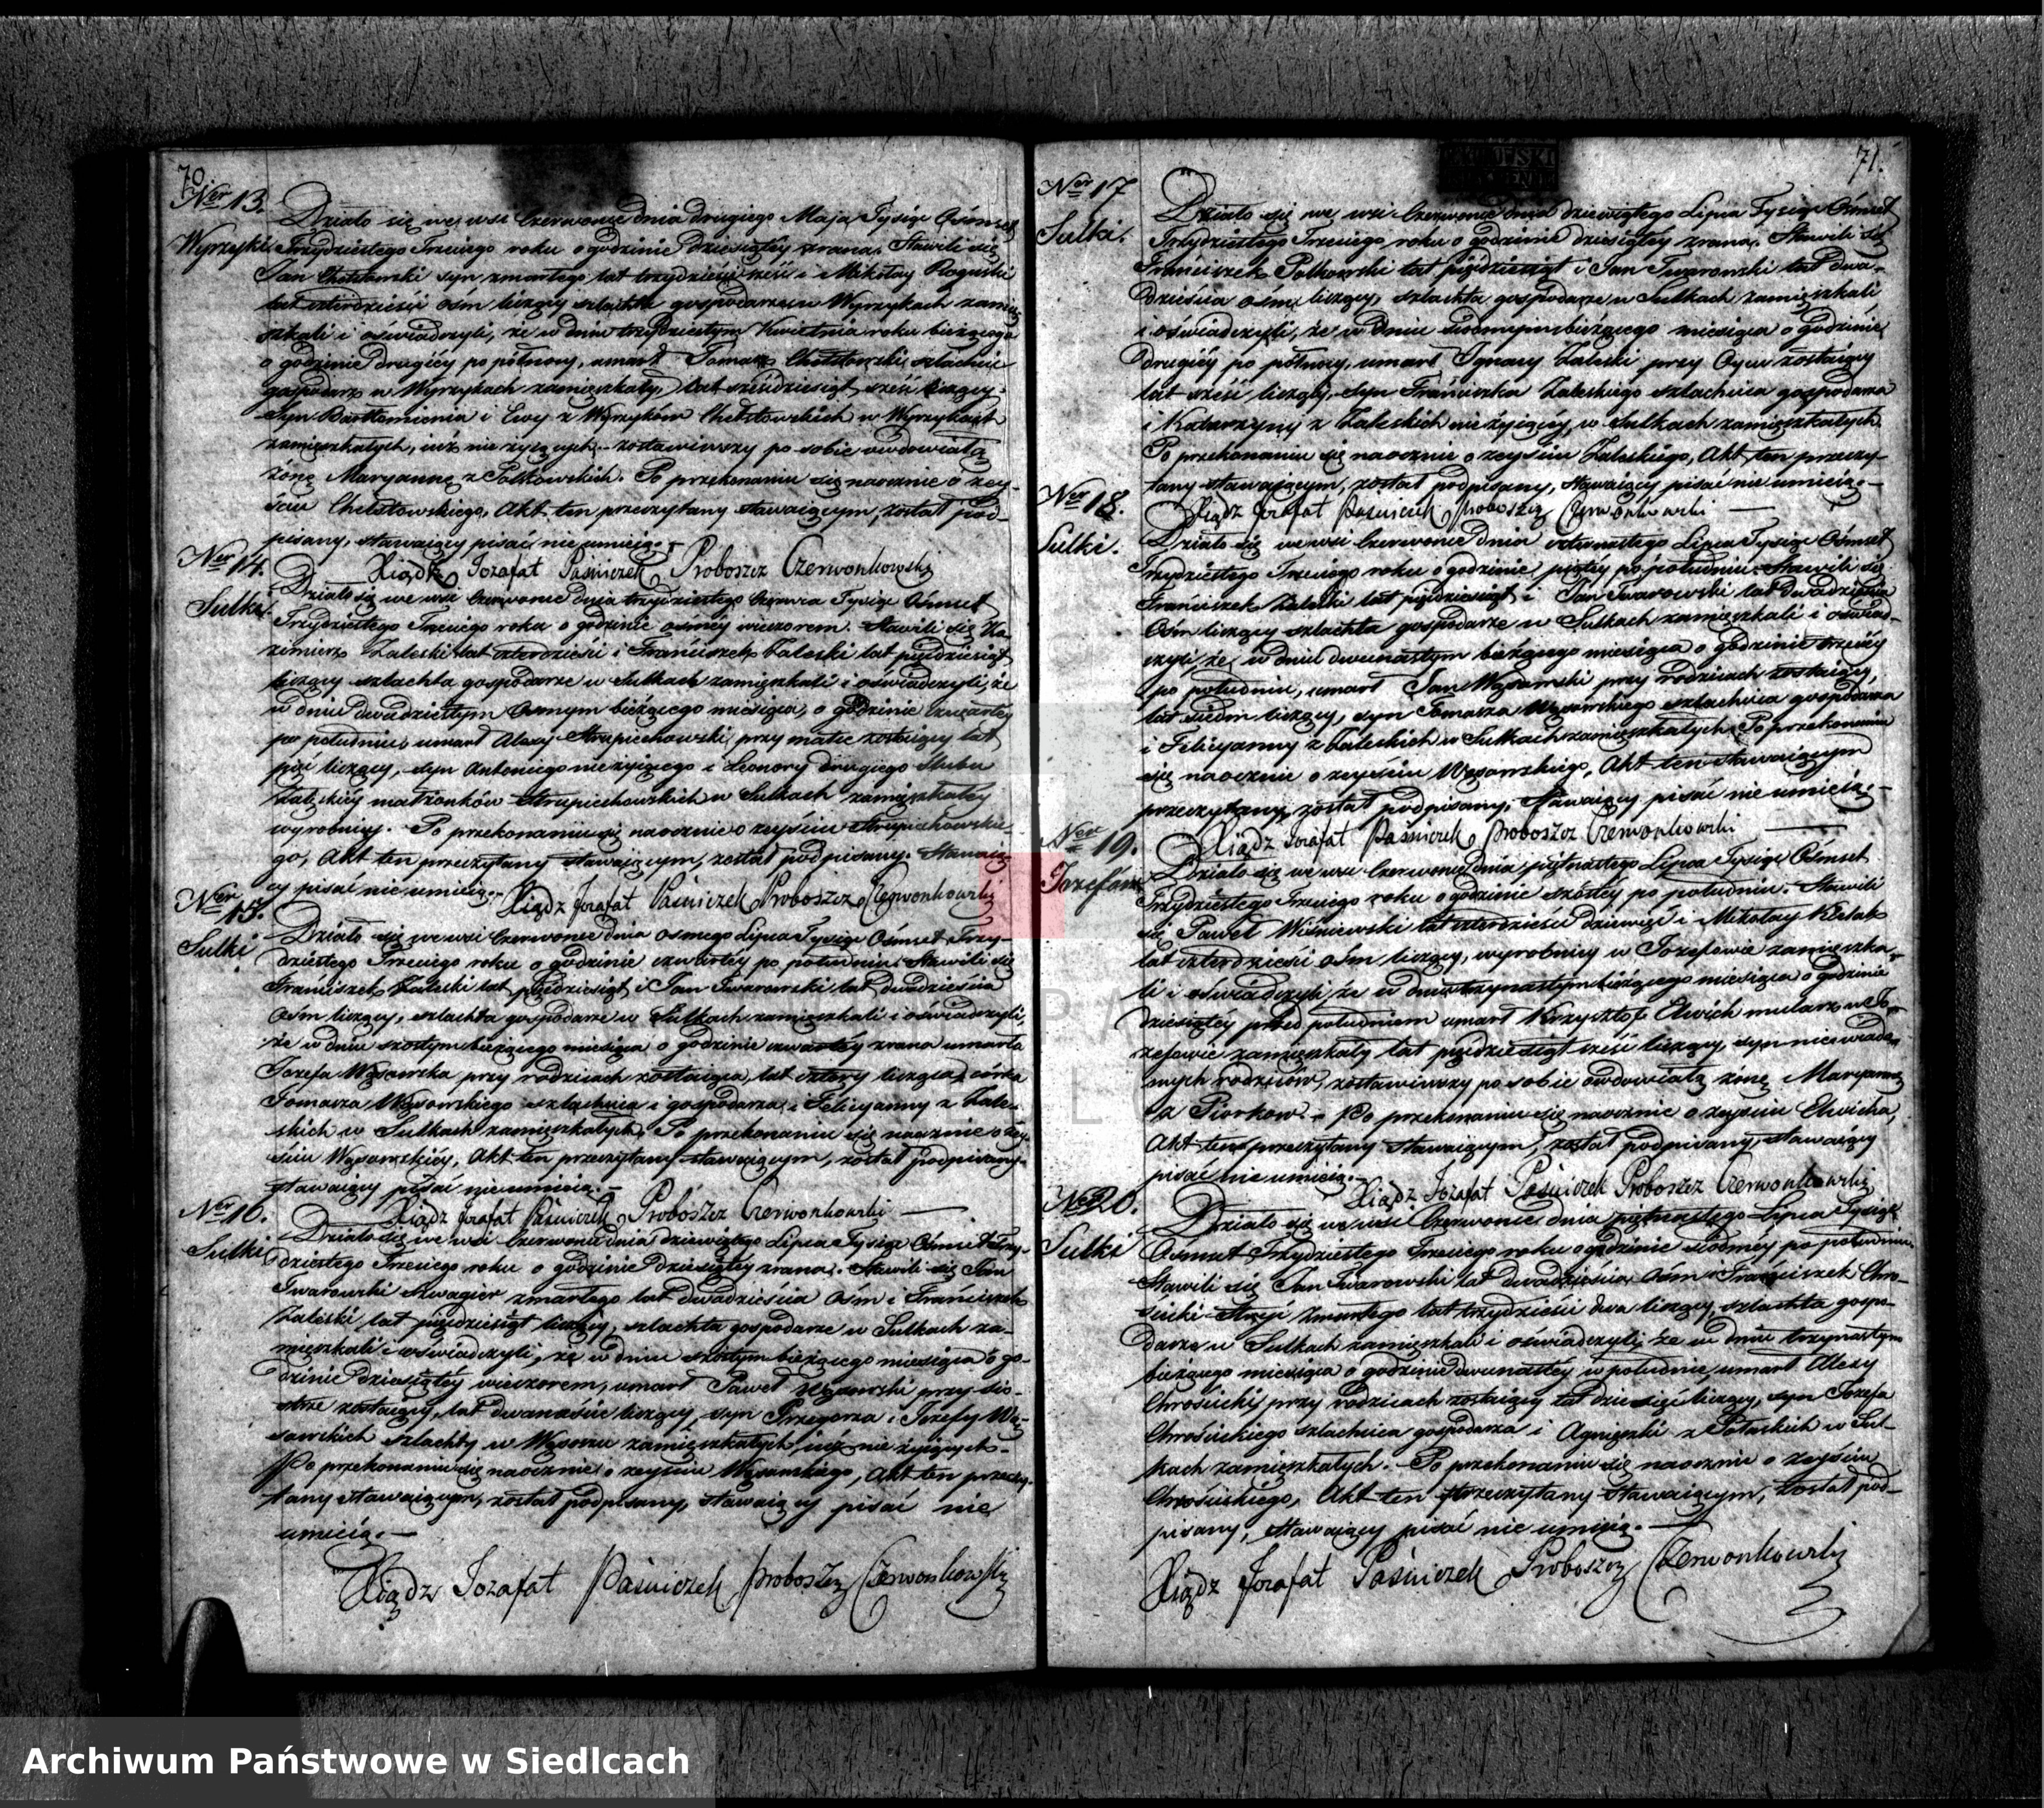 70.
Ner 13.
Wyrzyki
Działo się we wsi Czerwonce dnia drugiego Maja Tysiąc Ośmset
Trzydziestego Trzeciego roku o godzinie dziesiątey zrana. Stawili się
Jan Chełstowski syn zmarłego lat trzydzieści sześć i Mikołay Roguski
lat czterdzieści ośm liczący szlachta gospodarze w Wyrzykach zamie-
szkali i oświadczyli, że w dniu trzydziestym Kwietnia roku bieżącego
o godzinie drugiéy po północy, umarł Tomasz Chełstowski szlachcic
gospodarz w Wyrzykach zamieszkały, lat sześdziesiąt sześć liczący
syn Bartłomieja i Ewy z Wyrzyków Chełstowskich w Wyrzykach
zamieszkałych, iuż nie żyiących. zostawiwszy po sobie owdowiałą
żonę Maryannę z Polkowskich. Po przekonaniu się naocznie o zey-
ściu Chełstowskiego, Akt ten przeczytany stawaiącym, został pod-
pisany, stawaiący pisać nie umieią.
Xiądz Jozafat Paśniczek Proboszcz Czerwonkowski
Ner 14.
Sulki.
Działo się we wsi Czerwonce dnia trzydziestego Czerwca Tysiąc Ośmset
Trzydziestego Trzeciego roku o godzinie osméy wieczorem. Stawili się Ka-
zimierz Zaleski lat czterdzieści i Franciszek Zaleski lat pięćdziesiąt
liczący szlachta gospodarze w Sulkach zamięszkali i oświadczyli, że
w dniu dwudziestym Osmym bieżącego miesiąca, o godzinie czwartéy
po południu umarł Alexy Strupiechowski przy matce zostaiący lat
pięć liczący, syn Antoniego nieżyiącego i Leonory drugiego ślubu
Zaleskiéy małżonków Strupiechowskich w Sulkach zamięszkałey
wyrobnicy. Po przekonaniu się naocznie o zeyściu Strupiechowskie-
go, Akt ten przeczytany stawaiącym, został podpisany. Stawaią-
cy pisać nie umieią.- Xiądz Jozafat Paśniczek Proboszcz Czerwonkowski
Ner 15.
Sulki
Działo się we wsi Czerwonce dnia osmego Lipca Tysiąc Ośmset Trzy-
dziestego Trzeciego roku o godzinie czwartey po południu. Stawili się
Franciszek Zaleski lat pięćdziesiąt i Jan Twarowski lat dwadzieścia
ośm liczący, szlachta gospodarze w Sulkach zamięszkali i oświadczyli,
że w dniu szóstym bieżącego miesiąca o godzinie czwartéy zrana umarła
Jozefa Wąsowska przy rodzicach zostaiąca, lat cztery licząca, córka
Tomasza Wąsowskiego szlachcica i gospodarza i Felicyanny z Zale-
skich w Sulkach zamięszkałych. Po przekonaniu się naocznie o zey-
ściu Wąsowskiéy, Akt ten przeczytany stawaiącym, został podpisany-
stawaiący pisać nie umieią.-
Xiądz Jozafat Paśniczek Proboszcz Czerwonkowski
Ner 16.
Sulki
Działo się we wsi Czerwonce dnia dziewiątego Lipca Tysiąc Ośmset Trzy-
dziestego Trzeciego roku o godzinie dziesiątéy zrana. Stawili się Jan
Twarowski szwagier zmarłego lat dwadzieścia ośm i Franciszek
Zaleski lat pięćdziesiąt liczący, szlachta gospodarze w Sulkach za-
mięszkali i oświadczyli, że w dniu szóstym bieżącego miesiąca o go-
dzinie dziesiątéy wieczorem, umarł Paweł Wąsowski przy sio-
strze zostaiący, lat dwanaście liczący, syn Grzegorza i Jozefy Wą-
sowskich szlachty w Wąsoszu zamięszkałych iuż nie żyiących.-
Po przekonaniu się naocznie o zeyściu Wąsowskiego, Akt ten przeczy-
tany stawaiącym, został podpisany, stawaiący pisać nie
umieią.-
Xiądz Jozafat Paśniczek Proboszcz Czerwonkowski
71.
Ner 17
Sulki.
Działo się we wsi Czerwonce dnia dziewiątego Lipca Tysiąc Ośmset
Trzydziestego Trzeciego roku o godzinie dziesiątéy zrana. Stawili się
Franciszek Polkowski lat pięćdziesiąt i Jan Twarowski lat dwa-
dzieścia ośm liczący, szlachta gospodarze w Sulkach zamięszkali
i oświadczyli, że w dniu siódmym bieżącego miesiąca o godzinie
drugiéy po północy, umarł Ignacy Zaleski przy Oycu zostaiący
lat sześć liczący, syn Franciszka Zaleskiego szlachcica gospodarza
i Katarzyny z Zaleskich nieżyiącéy, w Sulkach zamięszkałych
Po przekonaniu się naocznie o zeyściu Zaleskiego, Akt ten przeczy-
tany stawaiącym, został podpisany, stawaiący pisać nie umieią.-
Xiądz Jozafat Paśniczek Proboszcz Czerwonkowski
Ner 18.
Sulki.
Działo się we wsi Czerwonce dnia czternastego Lipca Tysiąc Ośmset
Trzydziestego Trzeciego roku o godzinie piątey po południu. Stawili się
Franciszek Zaleski lat pięćdziesiąt i Jan Twarowski lat dwadzieścia
Ośm liczący szlachta gospodarze w Sulkach zamięszkali i oświad-
czyli, że w dniu dwunastym bieżącego miesiąca o godzinie trzeciéy
po południu, umarł Jan Wąsowski przy rodzicach zostaiący,
lat siedm liczący, syn Tomasza Wąsowskiego szlachcica gospodarza
i Felicyanny z Zaleskich w Sulkach zamięszkałych. Po przekonaniu
się naocznie o zeyściu Wąsowskiego, Akt ten stawaiącym
przeczytany został podpisany, stawaiący pisać nie umieią.-
Xiądz Jozafat Paśniczek Proboszcz Czerwonkowski
Ner 19.
Jozefów
Działo się we wsi Czerwonce dnia piętnastego Lipca Tysiąc Ośmset
Trzydziestego Trzeciego roku o godzinie szóstéy po południu. Stawili
się Paweł Wiśniewski lat czterdzieści dziewięć i Mikołay
lat czterdzieści ośm liczący, wyrobnicy w Jozefowie zamięszka-
li i oświadczyli, że w dniu trzynastym bieżącego miesiąca o godzinie
dziesiątéy przed południem umarł Krzysztof Elwich mularz w Jo-
zefowie zamięszkały lat pięćdziesiąt sześć liczący, syn niewiado-
mych rodziców, zostawiwszy po sobie owdowiałą żonę Maryannę
z Piorkow.- Po przekonaniu się naocznie o zeyściu Elwicha,
Akt ten przeczytany stawaiącym, został podpisany, stawaiący
pisać nie umieią.-
Xiądz Jozafat Paśniczek Proboszcz Czerwonkowski
Ner 20.
Sulki
Działo się we wsi Czerwonce dnia piętnastego Lipca Tysiąc
Ośmset Trzydziestego Trzeciego roku o godzinie siódméy po południu.
Stawili się Jan Twarowski lat dwadzieścia ośm i Franciszek Chro-
ścicki Stryi zmarłego lat trzydzieści dwa liczący, szlachta gospo-
darze w Sulkach zamięszkali i oświadczyli, że w dniu trzynastym
bieżącego miesiąca o godzinie dwunastéy w południe, umarł Alexy
Chrościcki, przy rodzicach zostaiący lat dziesięć liczący, syn Jozefa
Chrościckiego szlachcica gospodarza i Agnieszki z w Sul-
kach zamięszkałych. Po przekonaniu się naocznie o zeyściu
Chrościckiego, Akt ten przeczytany stawaiącym, został pod-
pisany, stawaiący pisać nie umieią.-
Xiądz Jozafat Paśniczek Proboszcz Czerwonkowski
Archiwum Państwowe w Siedlcach